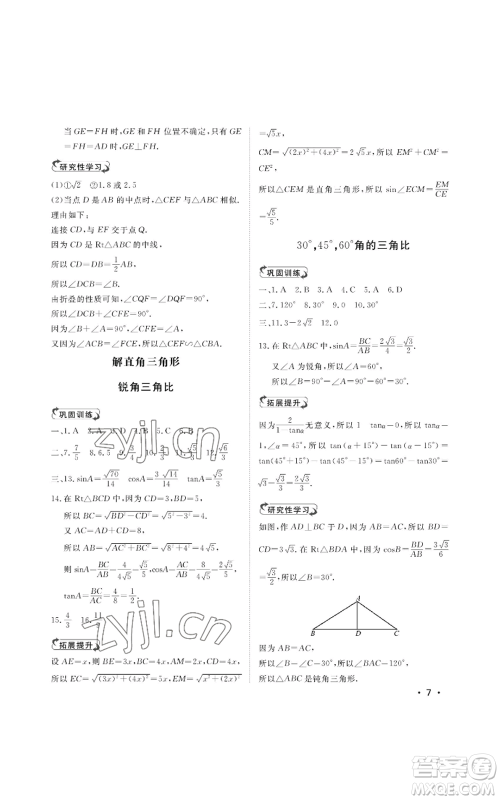 当 GE=FH 时,E,F 位置不确定,只有当 GE
=FH=AD 时,EF⊥BC.
研究性学习
(1)①√2 ②1.8 或 2.5
(2)当点 D 是 AB 的中点时,△CEF 与△ABC 相似.
理由如下:
连接 CD,与 EF 交于点 Q.
因为 CD 是 Rt△ABC 的中线,
所以 CD=DB=1/2AB,
所以∠DCB=∠B.
由折叠的性质可知,∠CQF=∠DQF=90°,
所以∠DCB+∠CFE=90°.
因为∠B+∠A=90°,所以∠CFE=∠A.
又因为∠ACB=∠FCE,所以△CEF∽△CBA.
解直角三角形
锐角三角比
巩固训练
三、13. sinA=√70/14 cosA=3√14/14 tanA=√5/3
14.在 Rt△BCD 中,因为 CD=3,BD=5,
所以 BC=√(BD²−CD²)=√(5²−3²)=4.
又因为 AC=AD+CD=8,
所以 AB=√(AC²+BC²)=√(8²+4²)=4√5.
则 sinA=BC/AB=4/4√5=√5/5,cosA=AC/AB=8/4√5=2√5/5,
tanA=BC/AC=4/8=1/2.
拓展提升
设 AE=x,则 BE=3x,BC=4x,AM=2x,CD=4x,
所以 EC=√((3x)²+(4x)²)=5x,EM=√(x²+(2x)²)=
√5x,
CM=√((2x)²+(4x)²)=2√5x,所以 EM²+CM²=
CE²,
所以△CEM 是直角三角形,所以 sin∠ECM=EM/CE
=√5/5.
30°,45°,60°角的三角比
巩固训练
一、1.A 2.A 3.A 4.C 5.A 6.D
三、11.3−√3 12.0
13.在 Rt△ABC 中,因为 sinA=BC/AB=√3/2,
又因为∠A 为锐角,
所以∠A=60°,所以∠B=30°.
拓展提升
因为 2/(1−tanα) 无意义,所以 1−tanα=0,所以 tanα=
1,所以锐角 α=45°,所以 tan(α+15°)−tan(α−15°)=
tan(45°+15°)−tan(45°−15°)=tan60°−tan30°=
√3−√3/3=2√3/3.
研究性学习
如图,作 AD⊥BC 于 D,
因为 CD=3√3.在 Rt△BDA 中,因为 cosB=BD/AB=3√3/6
=√3/2,
所以∠B=30°.
A
B D C
因为 AB=AC,所以∠C=30°,所以∠BAC=120°,
所以△ABC 是钝角三角形.
• 7 •
zyjl.cn
zyjl.cn